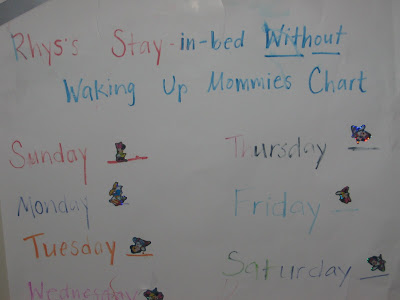 Rhys's Stay-in-bed Without
Waking Up Mommies Chart
Sunday
Monday
Tuesday
Wednesday
Thursday
Friday
Saturday